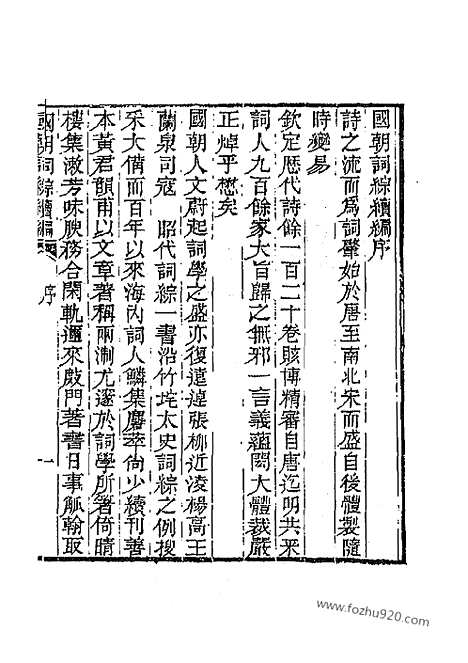 國朝詞綜續編序
詩之流而爲詞肇始於唐至南北宋而盛自後體製隨
時變易
欽定歷代詩餘一百二十卷賅博精審自唐迄明共采
詞人九百餘家大旨歸之無邪一言義蘊閎大體裁嚴
正焯乎懋矣
國朝人文蔚起詞學之盛亦復遠追張柳近淩楊高王
蘭泉司寇 昭代詞綜一書沿竹垞太史詞綜之例搜
采大備而百年以來海內詞人鱗集麕萃尙少續刊善
本黃君韻甫以文章著稱兩浙尤邃於詞學所著倚晴
樓集漱芳味腴務合閑軌邇來敲門著書日事觚翰取
國朝詞綜續編 序 一
www.fozhu920.com